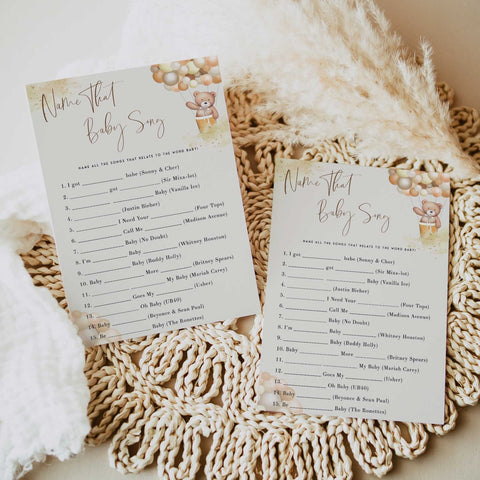 Name That
Baby Song
NAME ALL THE SONGS THAT RELATE TO THE WORD BABY!
1. I got ______ babe (Sonny & Cher)
2. ______ got ______ (Sir Mixa-lot)
3. ______ Baby (Vanilla Ice)
4. ______ (Justin Bieber)
5. ______ I Need Your ______ (Four Tops)
6. ______ Call Me ______ (Madison Avenue)
7. ______ Baby (No Doubt)
8. I'm ______ Baby ______ (Whitney Houston)
9. ______ Baby (Buddy Holly)
10. Baby ______ More ______ (Britney Spears)
11. ______ My Baby (Mariah Carey)
12. ______ Goes My ______ (Usher)
13. ______ Oh Baby (UB40)
14. Baby ______ (Beyonce & Sean Paul)
15. Be ______ Baby (The Ronettes)
Name That
Baby Song
NAME ALL THE SONGS THAT RELATE TO THE WORD BABY!
1. I got ______ babe (Sonny & Cher)
2. ______ got ______ (Sir Mixa-lot)
3. ______ Baby (Vanilla Ice)
4. ______ (Justin Bieber)
5. ______ I Need Your ______ (Four Tops)
6. ______ Call Me ______ (Madison Avenue)
7. ______ Baby (No Doubt)
8. I'm ______ Baby ______ (Whitney Houston)
9. ______ Baby (Buddy Holly)
10. Baby ______ More ______ (Britney Spears)
11. ______ My Baby (Mariah Carey)
12. ______ Goes My ______ (Usher)
13. ______ Oh Baby (UB40)
14. Baby ______ (Beyonce & Sean Paul)
15. Be ______ Baby (The Ronettes)